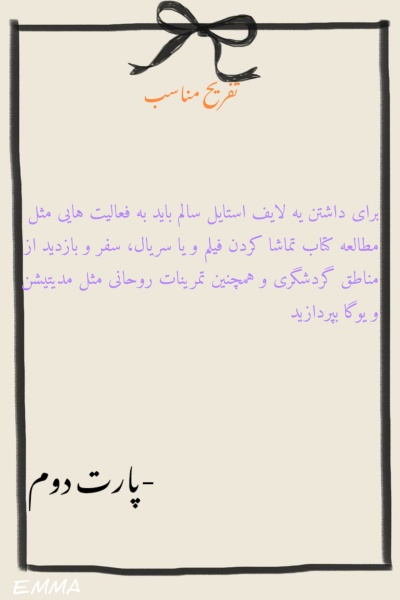 تفریح مناسب
برای داشتن یه لایف استایل سالم باید به فعالیت هایی مثل
مطالعه کتاب تماشا کردن فیلم و یا سریال، سفر و بازدید از
مناطق گردشگری و همچنین تمرینات روحانی مثل مدیتیشن
و یوگا بپردازید
-پارت دوم
EMMA